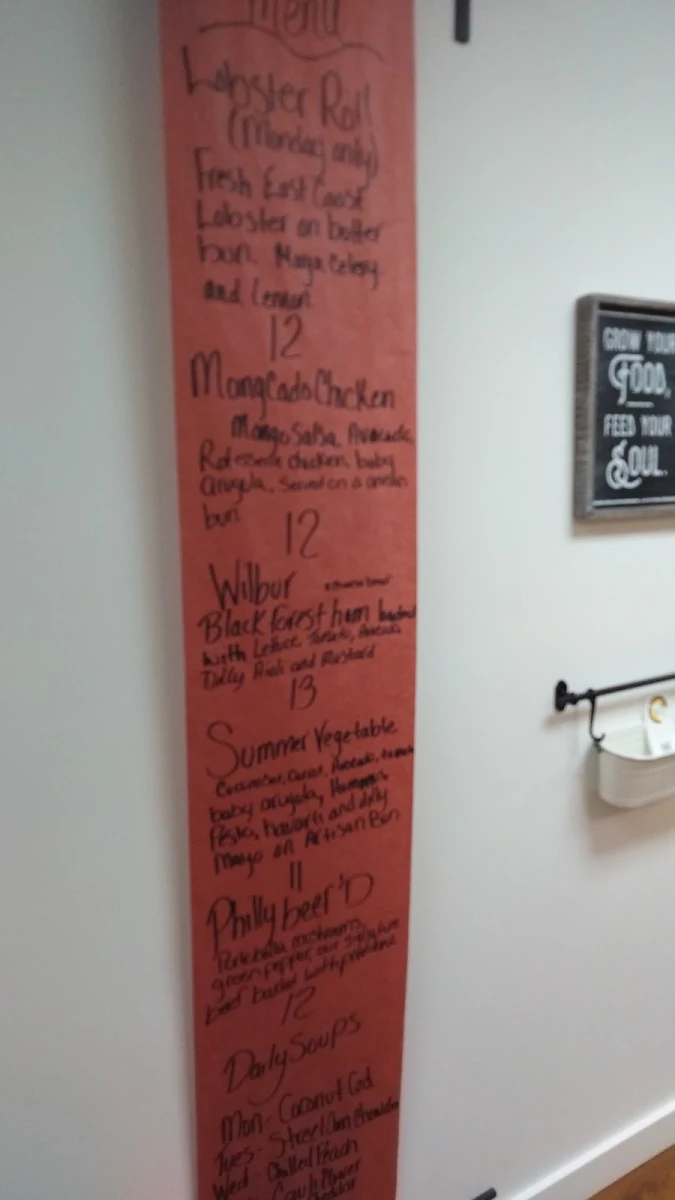 Menu
Lobster Roll
(Monday only)
Fresh East Coast
Lobster on butter
bun. Mayo Celery
and Lemon
12
MangCado Chicken
Mango Salsa, Avocado,
Rotesserie chicken, baby
arugula. Served on a
bun
12
Wilbur
Black forest ham
with Lettuce Tomato, Avocado
Dilly Aioli and Mustard
13
Summer Vegetable
Cucumber, Carrot, Avocado, tomato
baby arugula, Hummus
Pesto, havarti and dilly
Mayo on Artisan Bun
11
Philly beer'D
Portobella mushrooms,
green pepper, our signature
beef basted with provolone
12
Daily Soups
Mon - Coconut Cod
Tues - Street Corn Chowder
Wed - Chilled Peach
Cauliflower
Cheddar
GROW YOUR
FOOD,
FEED YOUR
SOUL.